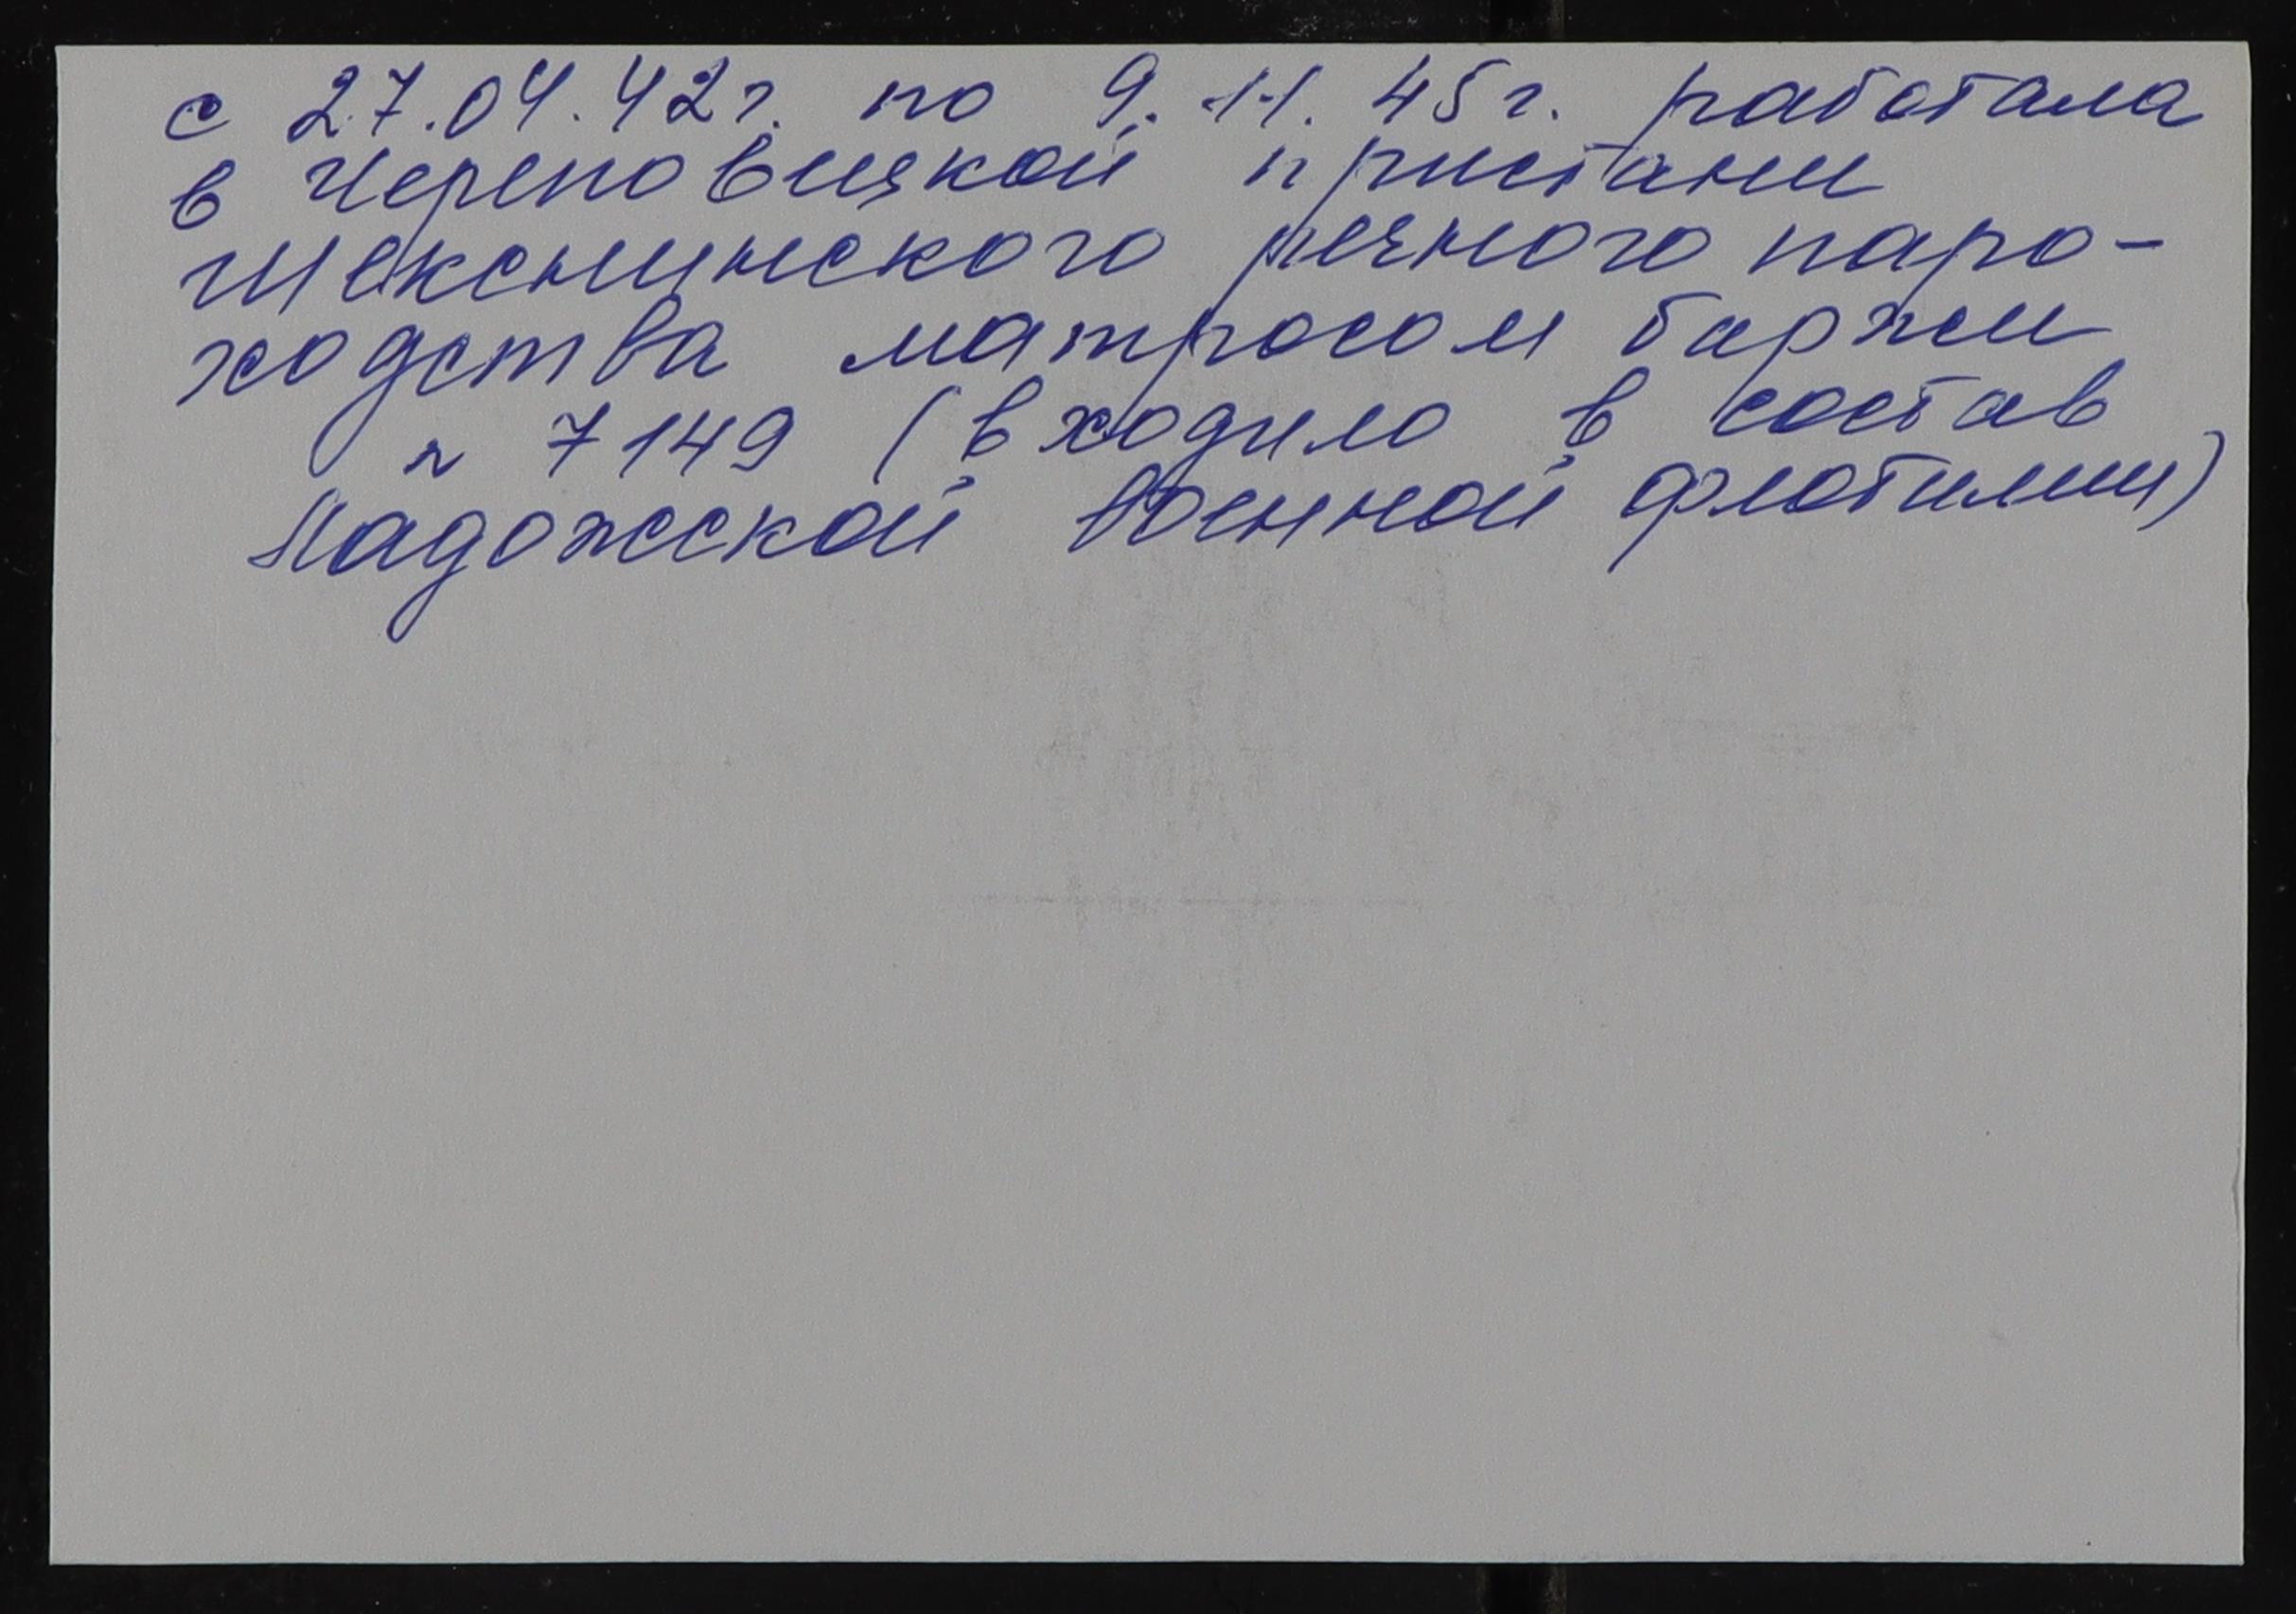 с 27.04.42г. по 9.11.45г. работала
в Череповецкой пристани
Шекснинского речного паро-
ходства матросом баржи
№ 7149 (входило в состав
Ладожской военной флотилии)